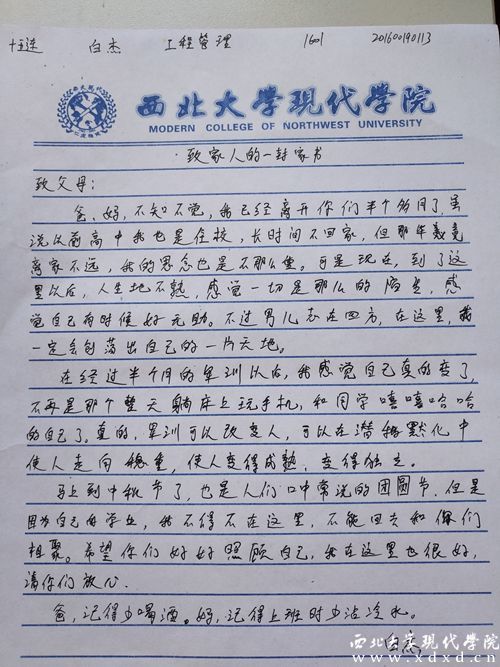 十五连 白杰 工程管理 1601 201600190113
西北大学现代学院
MODERN COLLEGE OF NORTHWEST UNIVERSITY
致家人的一封家书
致父母：
爸、妈，不知不觉，我已经离开你们半个多月了，虽
说以前高中我也是住校，长时间不回家，但那毕竟
离家不远，我的思念也是不那么重。可是现在，到了这
里以后，人生地不熟，感觉一切是那么的陌生，感
觉自己有时候好无助。不过男儿志在四方，在这里，我
一定会创荡出自己的一片天地。
在经过半个月的军训以后，我感觉自己真的变了，
不再是那个整天躺床上玩手机，和同学嘻嘻哈哈
的自己了。真的，军训可以改变人，可以在潜移默化中
使人走向稳重，使人变得成熟，变得独立。
马上到中秋节了，也是人们口中常说的团圆节，但是
因为自己的学业，我不得不在这里，不能回去和你们
相聚。希望你们好好照顾自己，我在这里也很好，
请你们放心．
爸，记得少喝酒。妈，记得上班时少沾冷水。
白杰
西北大学现代学院
www.xdxd.cn